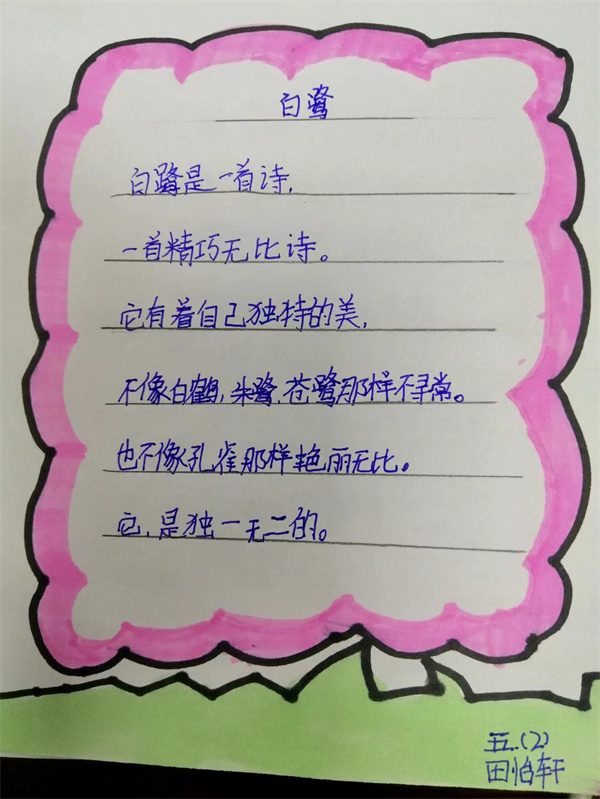 白鹭
白鹭是一首诗,
一首精巧无比诗。
它有着自己独特的美,
不像白鹤,朱鹭,苍鹭那样不寻常。
也不像孔雀那样艳丽无比。
它,是独一无二的。
五.(2)
田怡轩